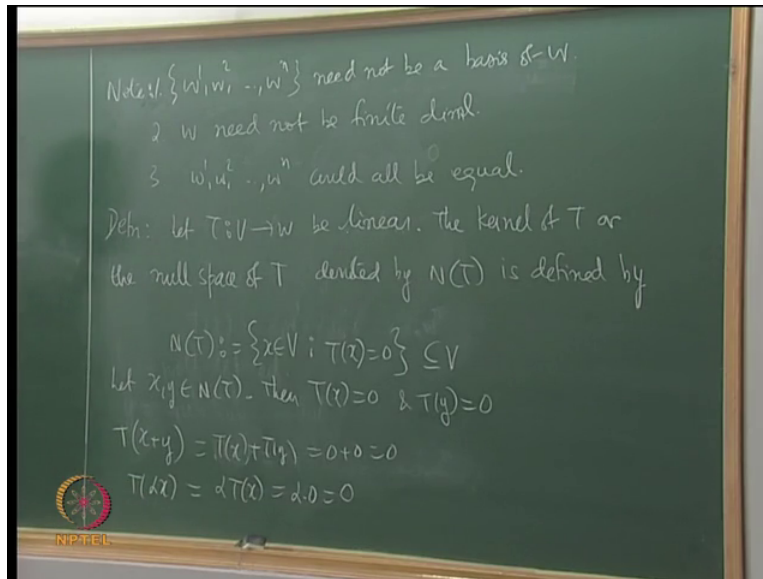 Note: 1. {w¹, w², .., wⁿ} need not be a basis of W.
2. W need not be finite diml.
3 w¹, w², .., wⁿ could all be equal.
Defn: Let T: V → W be linear. The kernel of T or
the null space of T denoted by N(T) is defined by
N(T) := {x ∈ V : T(x) = 0} ⊆ V
Let x, y ∈ N(T). Then T(x) = 0 & T(y) = 0
T(x+y) = T(x) + T(y) = 0+0 = 0
T(αx) = αT(x) = α.0 = 0
NPTEL